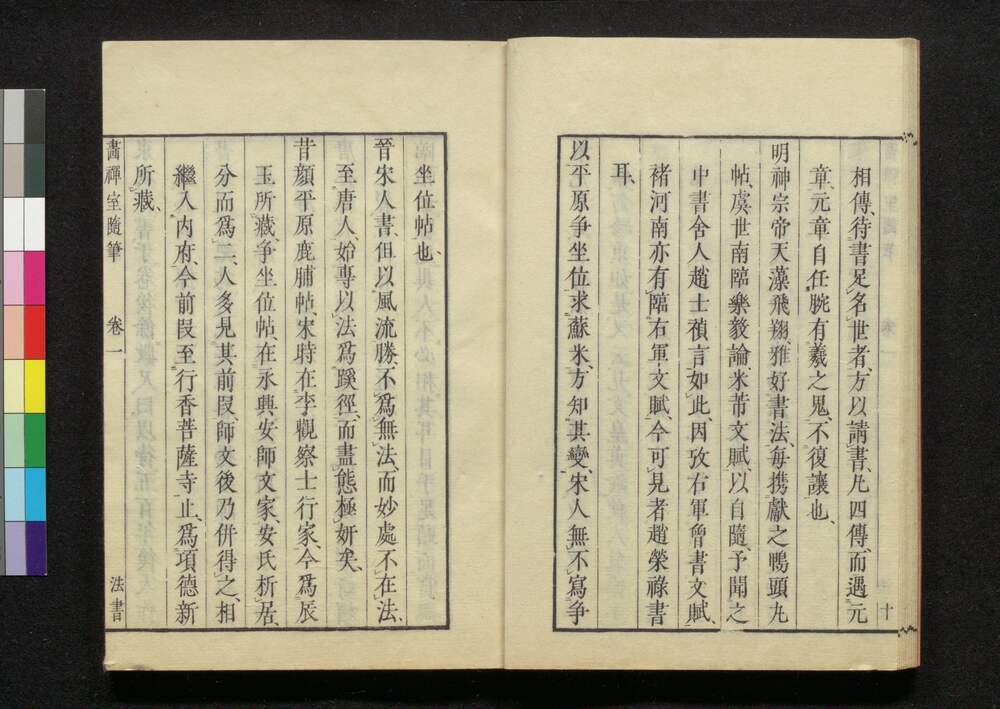 相傳、待書足名世者、方以請書、凡四傳、而遇元
章、元章自任腕有羲之鬼、不復讓也、
明神宗帝天藻飛翔、雅好書法、每携獻之鴨頭丸
帖、虞世南臨樂毅論、米芾文賦、以自隨、予聞之
中書舍人趙士禎言如此、因攷右軍曾書文賦、
褚河南亦有臨右軍文賦、今可見者趙榮祿書
耳、
以平原爭坐位求蘇米、方知其變、宋人無不寫爭
十
坐位帖也、
晉宋人書、但以風流勝、不爲無法、而妙處不在法、
至唐人始專以法爲蹊徑、而盡態極姸矣、
昔顏平原鹿脯帖、宋時在李觀察士行家、今爲辰
玉所藏、爭坐位帖、在永興安師文家、安氏析居、
分而爲二、人多見其前段、師文後乃併得之、相
繼入内府、今前段至行香菩薩寺止、爲項德新
所藏、
畫禪室隨筆 卷一 法書